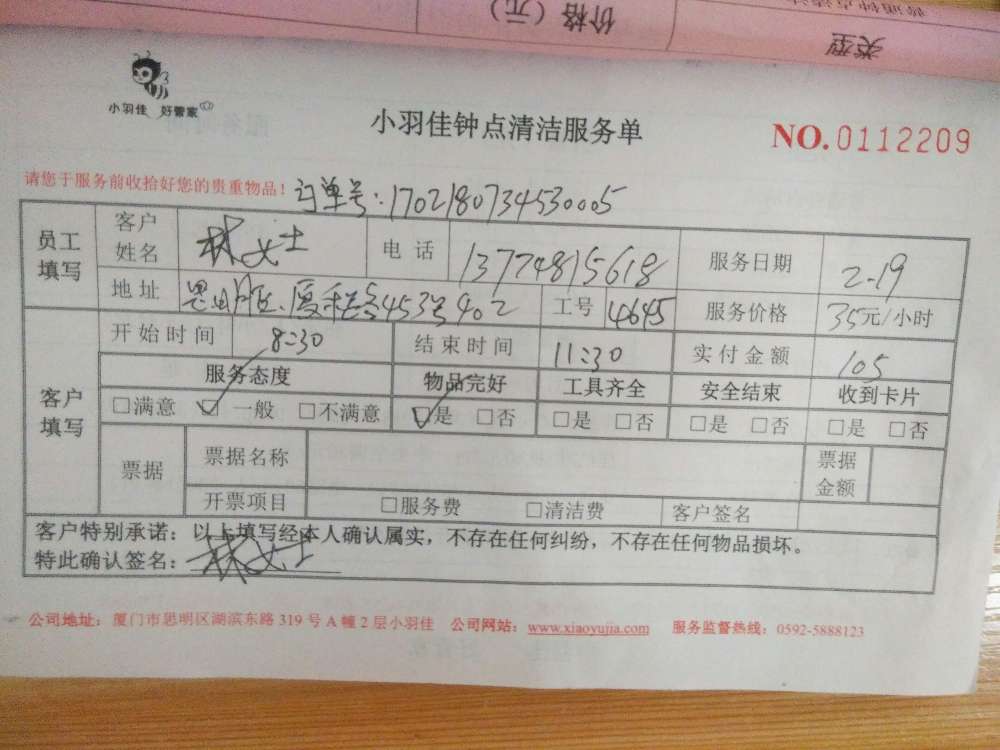 价格(元)
类型
小羽佳 好管家
小羽佳钟点清洁服务单
NO.0112209
请您于服务前收拾好您的贵重物品!
订单号:1702180734530005
员工填写 客户姓名 林女士 电话 13774815618 服务日期 2-19
地址 思明区厦禾路453号402 工号 4645 服务价格 35元/小时
客户填写 开始时间 8:30 结束时间 11:30 实付金额 105
服务态度 物品完好 工具齐全 安全结束 收到卡片
□满意 ☑一般 □不满意 ☑是 □否 □是 □否 □是 □否 □是 □否
票据 票据名称 票据金额
开票项目 □服务费 □清洁费 客户签名
客户特别承诺:以上填写经本人确认属实,不存在任何纠纷,不存在任何物品损坏。
特此确认签名:林女士
公司地址:厦门市思明区湖滨东路 319 号 A 幢 2 层小羽佳 公司网站:www.xiaoyujia.com 服务监督热线:0592-5888123